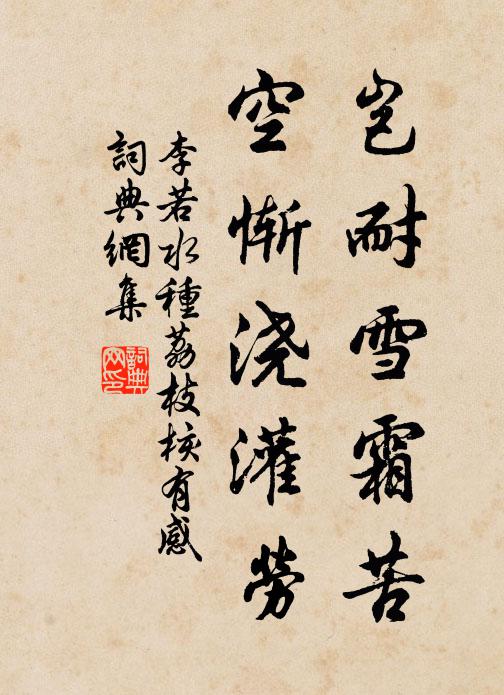 岂耐雪霜苦
空惭浇灌勞
李若水種荔枝核有感
詞典網集
詞典网印